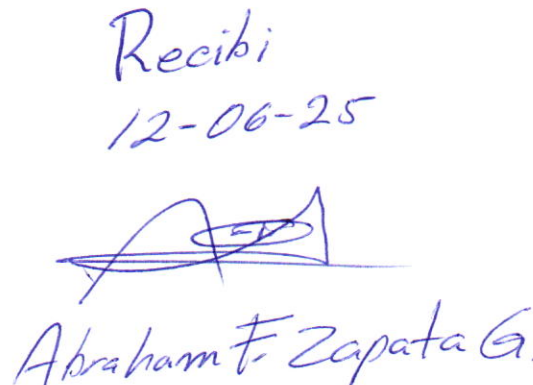 Recibi
12-06-25
Abraham F. Zapata G.